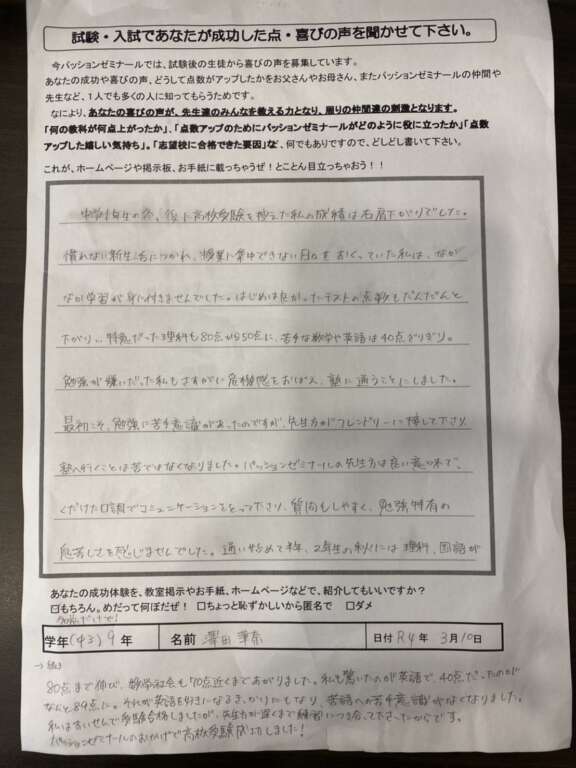 試験・入試であなたが成功した点・喜びの声を聞かせて下さい。
今パッションゼミナールでは、試験後の生徒から喜びの声を募集しています。
あなたの成功や喜びの声、どうして点数がアップしたかをお父さんやお母さん、またパッションゼミナールの仲間や
先生など、1人でも多くの人に知ってもらうためです。
なにより、あなたの喜びの声が、先生達のみんなを教える力となり、周りの仲間達の刺激となります。
「何の教科が何点上がったか」、「点数アップのためにパッションゼミナールがどのように役に立ったか」「点数
アップした嬉しい気持ち」。「志望校に合格できた要因」など、何でもありですので、どしどし書いて下さい。
これが、ホームページや掲示板、お手紙に載っちゃうぜ！とことん目立っちゃおう！！
中学1年生の冬、後に高校受験を控えた私の成績は右肩下がりでした。
慣れない新生活につかれ、授業に集中できない日々をおくっていた私は、なか
なか学習が身に付きませんでした。はじめは良かったテストの点数もだんだんと
下がり、特意だった理科も80点から50点に、苦手な数学や英語は40点ぎりぎり。
勉強が嫌いだった私もさすがに危機感をおぼえ、塾に通うことにしました。
最初こそ、勉強に苦手意識があったのですが、先生方がフレンドリーに接して下さり、
塾へ行くことは苦ではなくなりました。パッションゼミナールの先生方は良い意味で、
くだけた口調でコミュニケーションをとって下さり、質問もしやすく、勉強特有の
息苦しさを感じませんでした。通い始めて半年、2年生の秋には理科、国語が
あなたの成功体験を、教室掲示やお手紙、ホームページなどで、紹介してもいいですか？
□もちろん。めだって何ぼだぜ！ □ちょっと恥ずかしいから匿名で □ダメ
学年(中3) 9年 名前 澤田 日付 R4年 3月10日
80点まで伸び、数学社会も70点近くまであがりました。私も驚いたのが英語で、40点だったのが
なんと89点に。それが英語を好きになるきっかけにもなり、英語への苦手意識がなくなりました。
私はすいせんで受験合格しましたが、先生方が遅くまで練習につき合って下さったからです。
パッションゼミナールのおかげで高校受験成功しました！